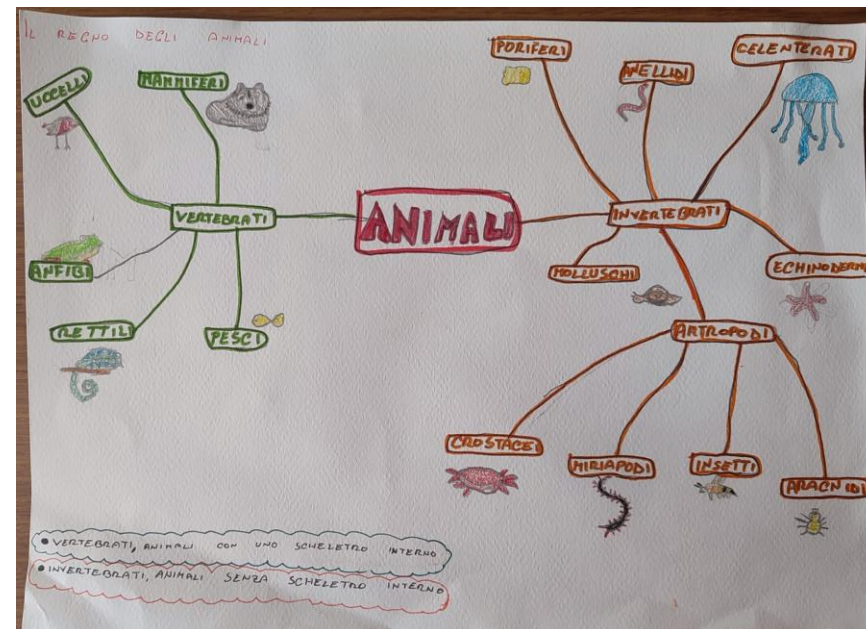 IL REGNO DEGLI ANIMALI
UCCELLI
MAMMIFERI
VERTEBRATI
ANFIBI
RETTILI
PESCI
ANIMALI
PORIFERI
ANELLIDI
CELENTERATI
INVERTEBRATI
MOLLUSCHI
ECHINODERMI
ARTROPODI
CROSTACEI
MIRIAPODI
INSETTI
ARACNIDI
• VERTEBRATI, ANIMALI CON UNO SCHELETRO INTERNO
• INVERTEBRATI, ANIMALI SENZA SCHELETRO INTERNO